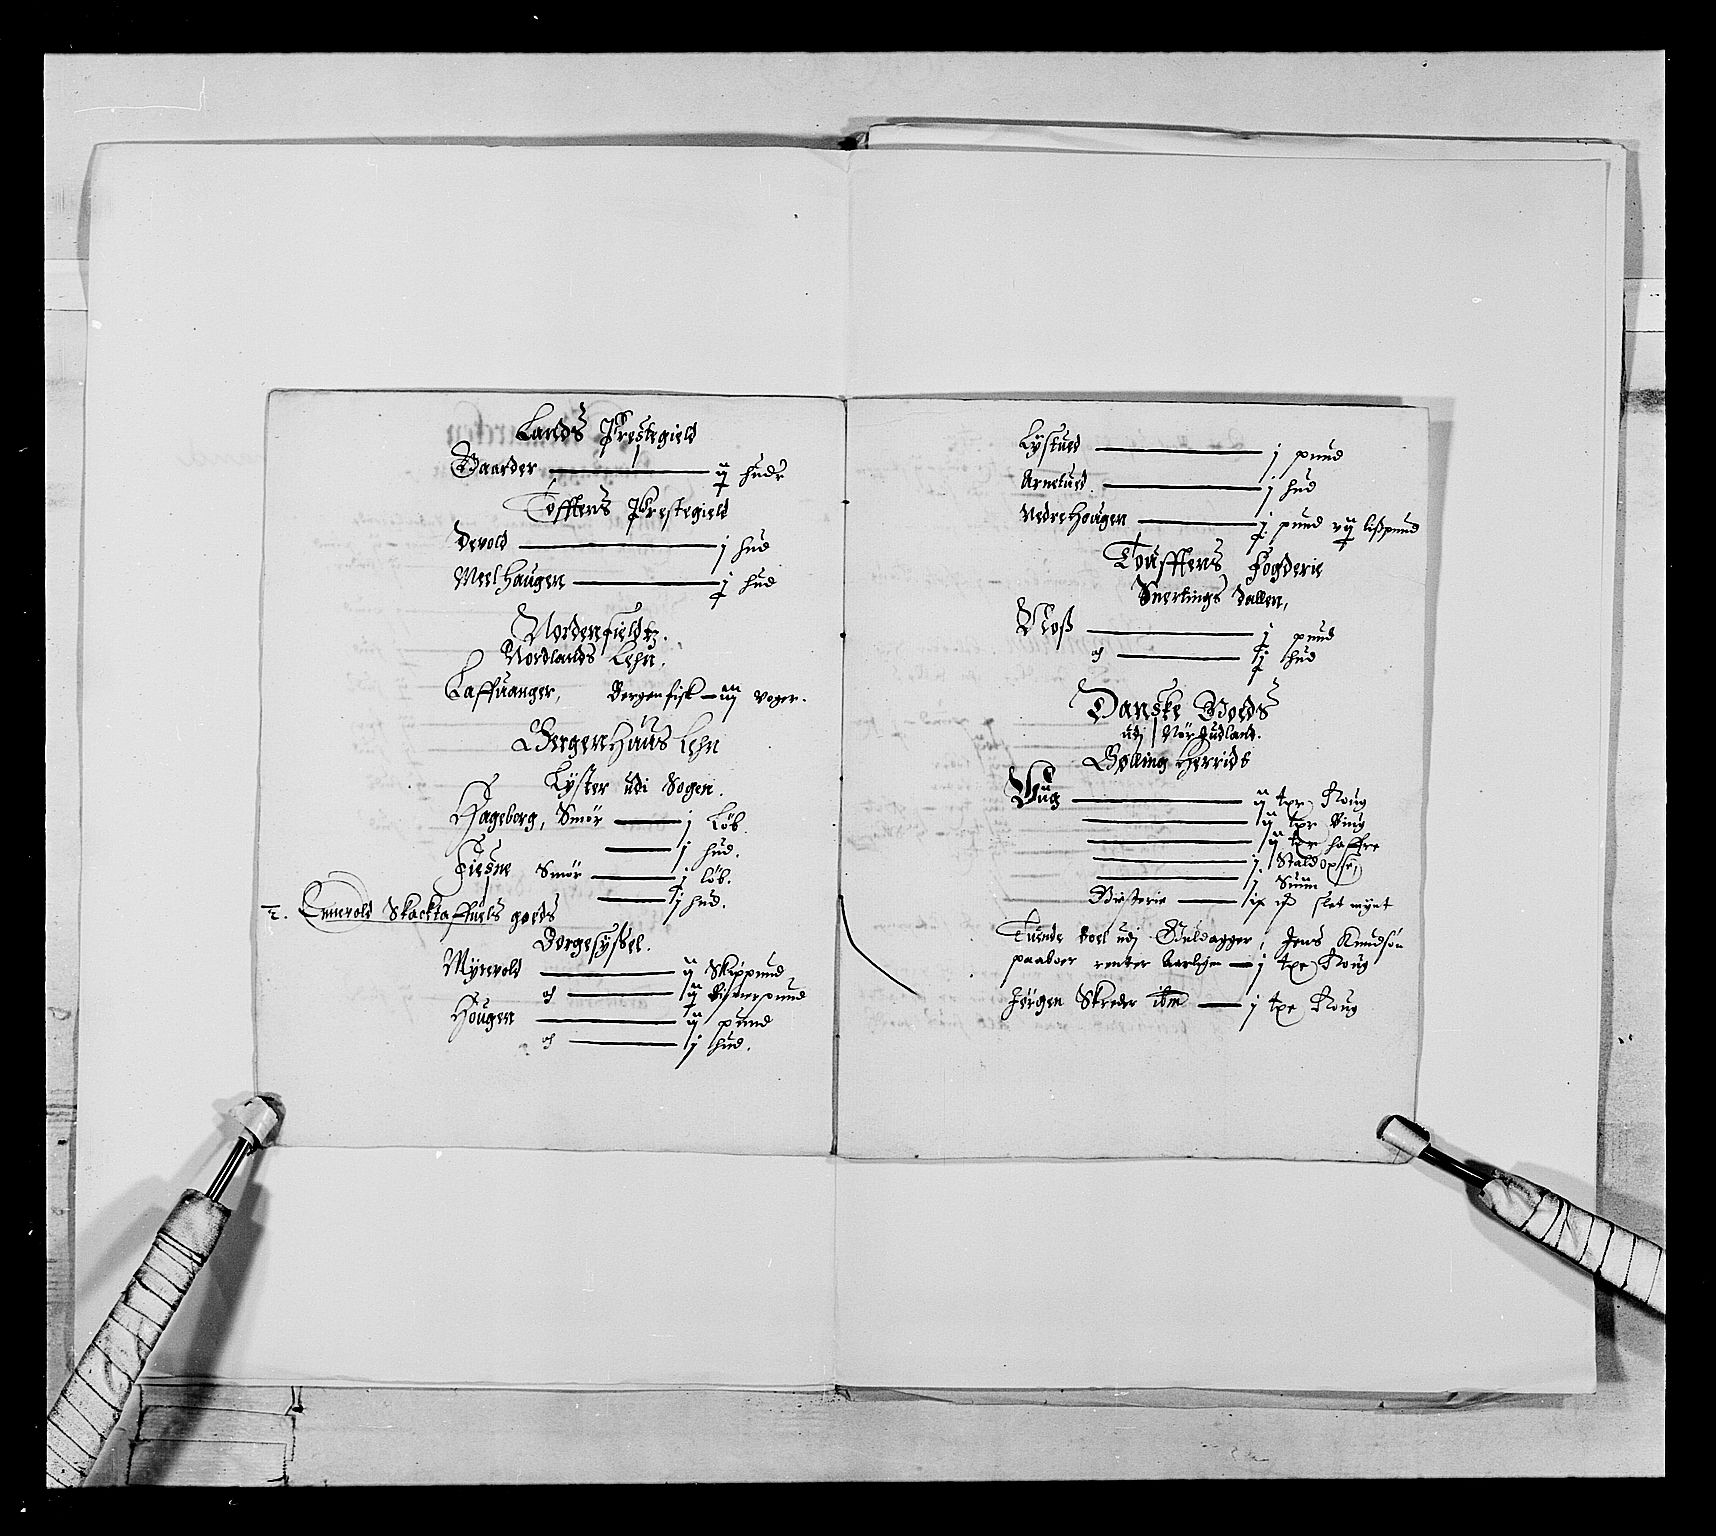 Lands Prestegield
Baarder ij hudr
Toffens Prestegield
Devold j hud
Meelhaugen j hud
Nordenfieldtz.
Nordlands Lehn.
Laffuanger, Bergenfisk iiij voger.
Bergenhuus Lehn
Lyster udi Sogen.
Hageborg, Smör j Löb.
j hud.
Fiesne Smör j löb.
j hud.
2. Enevold Skacktaffuels goeds
Borgesyssel.
Myrevold ij Skippund
och ij Bismerpund
Hougen ij pund
och j hud.
Lystued j pund
Arnetued j hud
Nedrehougen j pund vij lißpund
Touffens Fogderie
Snertings dallen,
Noß j pund
och j hud
Danske Goeds
udj Nörjudland.
Gølling Herridt
Vug ij tpr Roug
ij tpr Biug
ij tpr haffre
j Staldopse,
j Suin
Giesterie ix slet mynt
Tuende boel udj Guldagger, Jens Knudsøn
paaboer renter Aarligen j tpr Roug
Jörgen Skreder ibm j tpr Roug